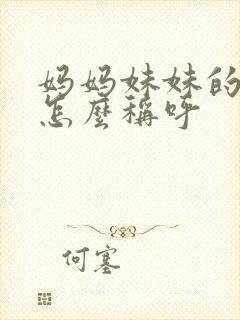 妈妈妹妹的
怎麼稱呼
何塞